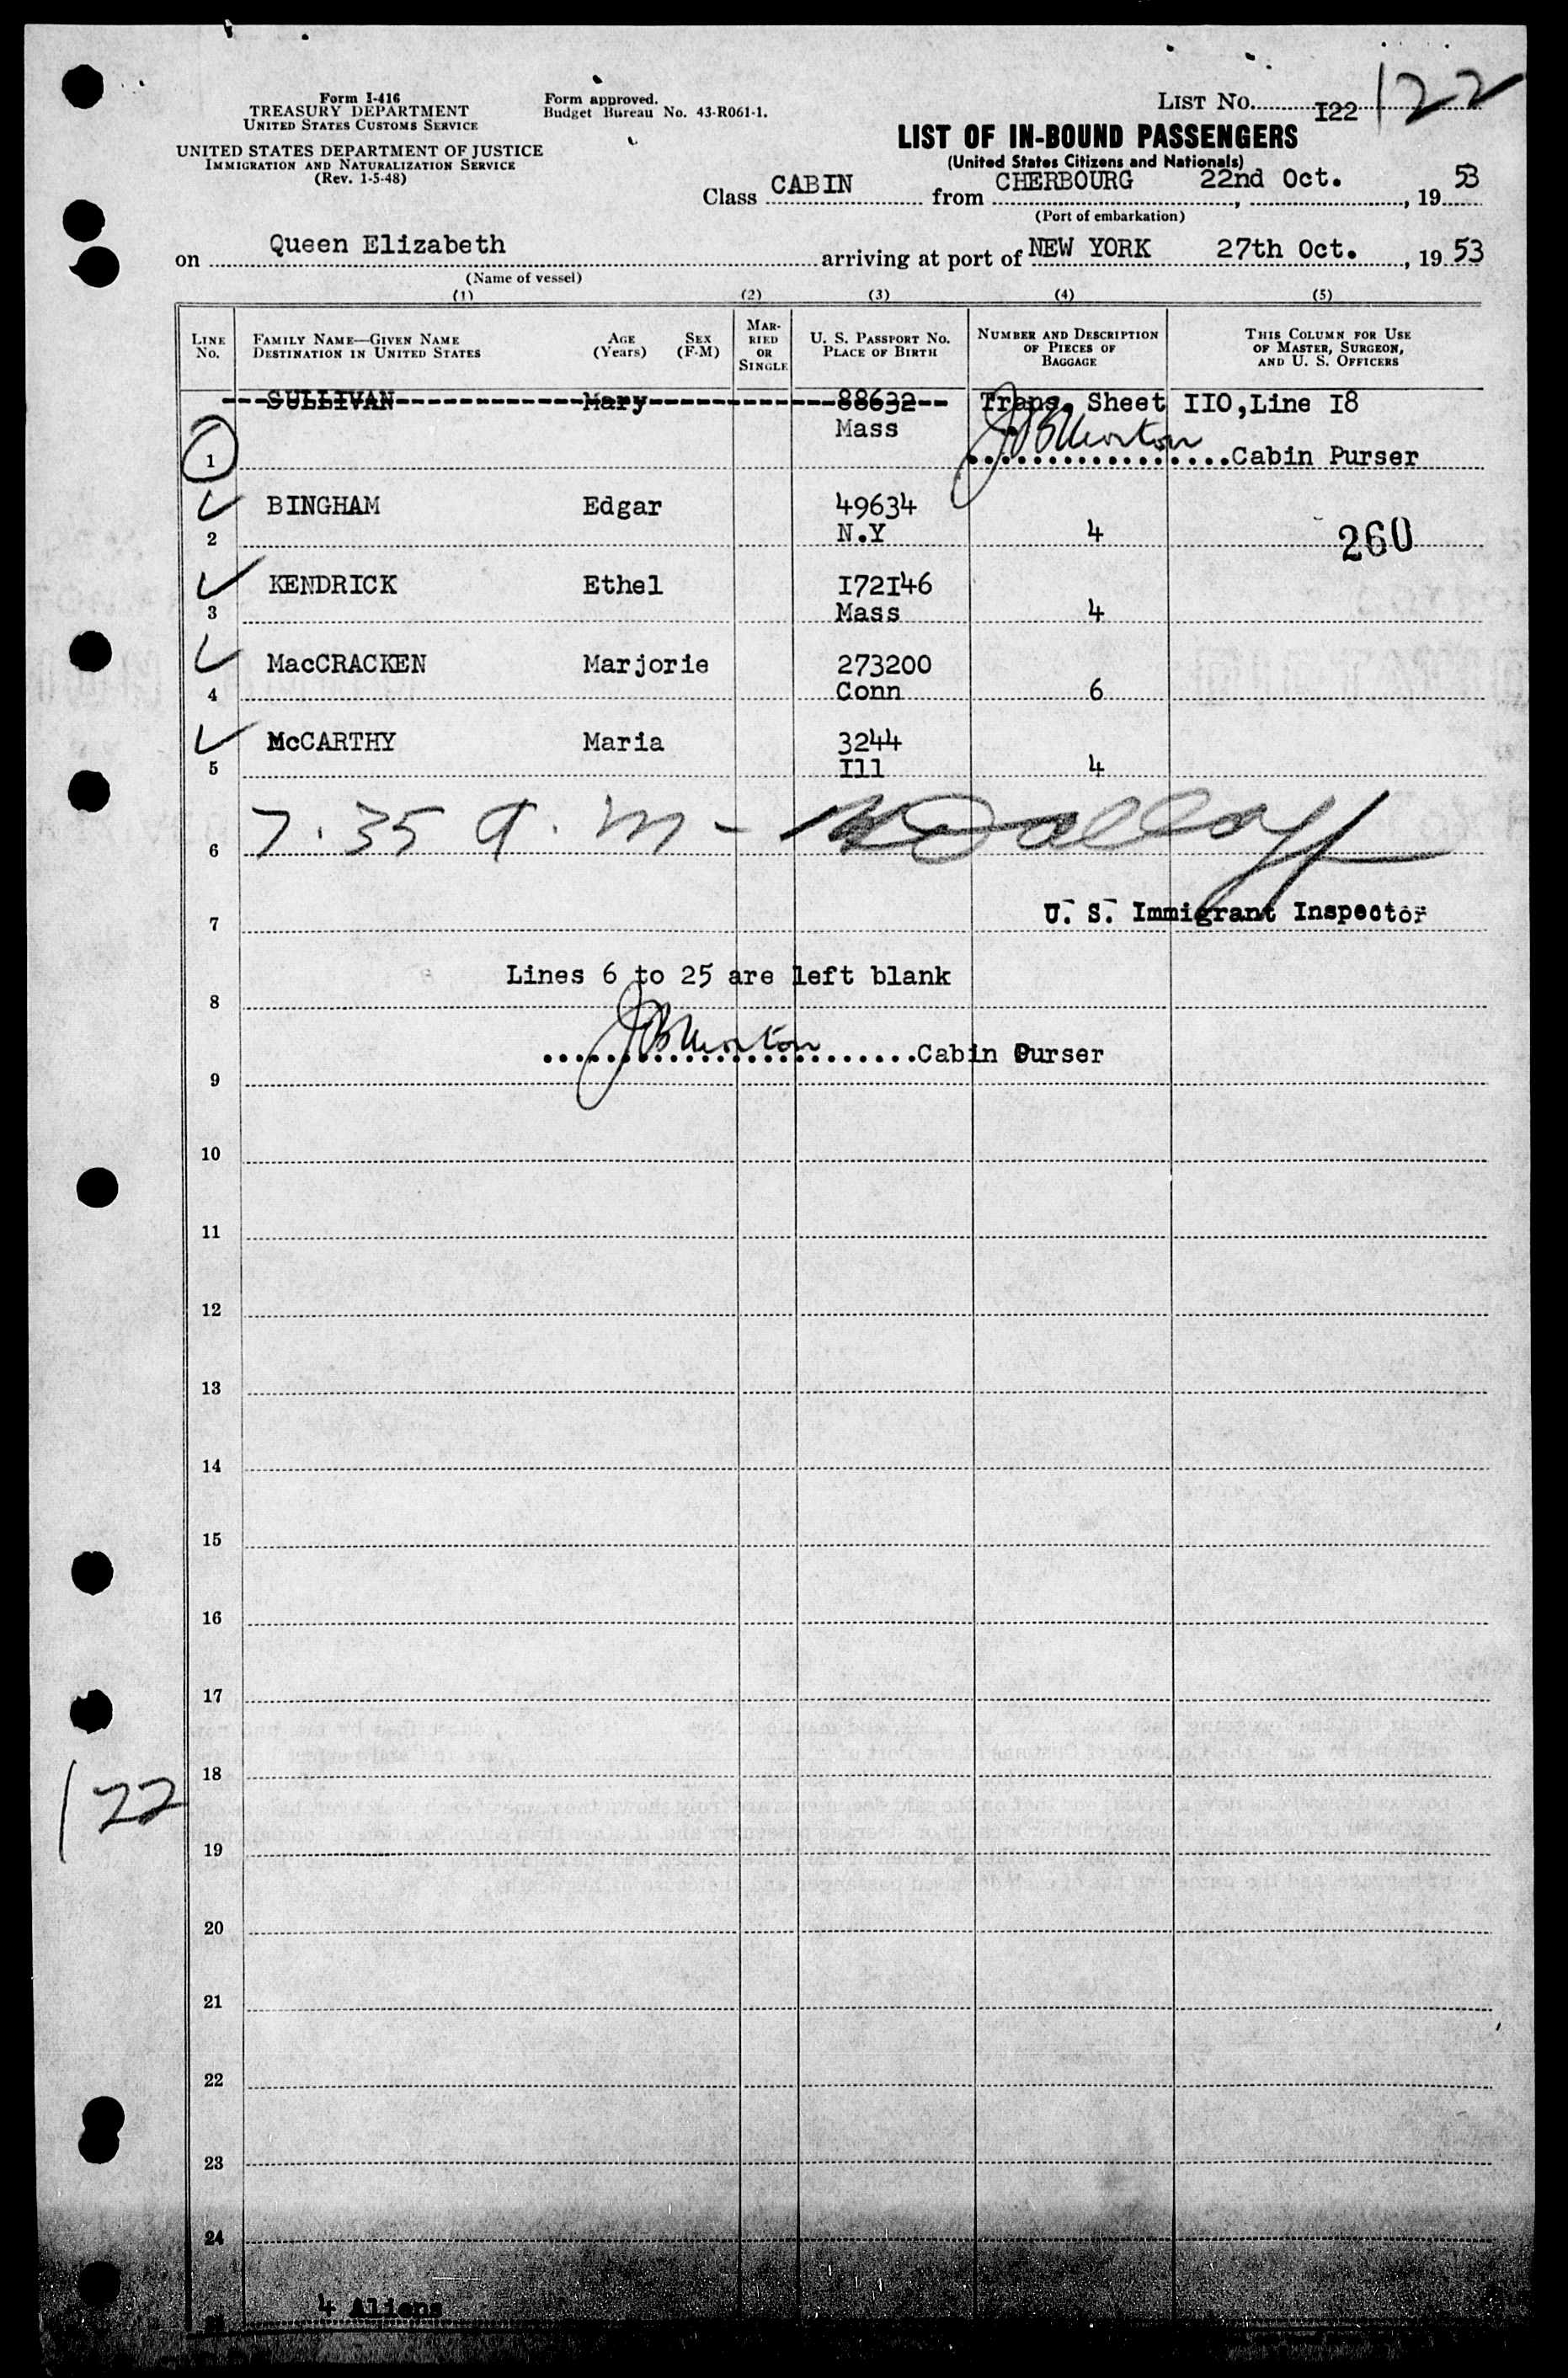 Form I-416
TREASURY DEPARTMENT
UNITED STATES CUSTOMS SERVICE
UNITED STATES DEPARTMENT OF JUSTICE
IMMIGRATION AND NATURALIZATION SERVICE
(Rev. 1-5-48)
Form approved.
Budget Bureau No. 43-R061-1.
LIST NO. I22 122
LIST OF IN-BOUND PASSENGERS
(United States Citizens and Nationals)
Class CABIN from CHERBOURG 22nd Oct., 19 53
(Port of embarkation)
on Queen Elizabeth arriving at port of NEW YORK 27th Oct., 19 53
(Name of vessel)
(1) (2) (3) (4) (5)
LINE NO. FAMILY NAME—GIVEN NAME DESTINATION IN UNITED STATES AGE (Years) SEX (F-M) MARRIED OR SINGLE U. S. PASSPORT NO. PLACE OF BIRTH NUMBER AND DESCRIPTION OF PIECES OF BAGGAGE THIS COLUMN FOR USE OF MASTER, SURGEON, AND U. S. OFFICERS
SULLIVAN Mary 88632 Trans. Sheet II0, Line I8
Mass
1 Cabin Purser
BINGHAM Edgar 49634
2 N.Y 4 260
KENDRICK Ethel I72I46
3 Mass 4
MacCRACKEN Marjorie 273200
4 Conn 6
McCARTHY Maria 3244
5 Ill 4
6 7.35 a.m -
7 U. S. Immigrant Inspector
Lines 6 to 25 are left blank
8
Cabin Purser
9
10
11
12
13
14
15
16
17
18
122
19
20
21
22
23
24
4 Aliens